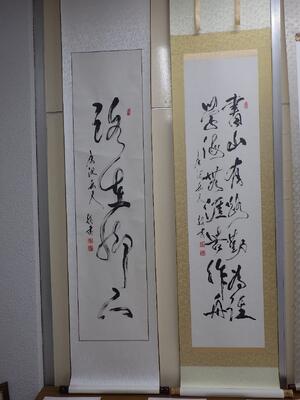 書山有路勤為徑
學海無涯苦作舟
路在腳下